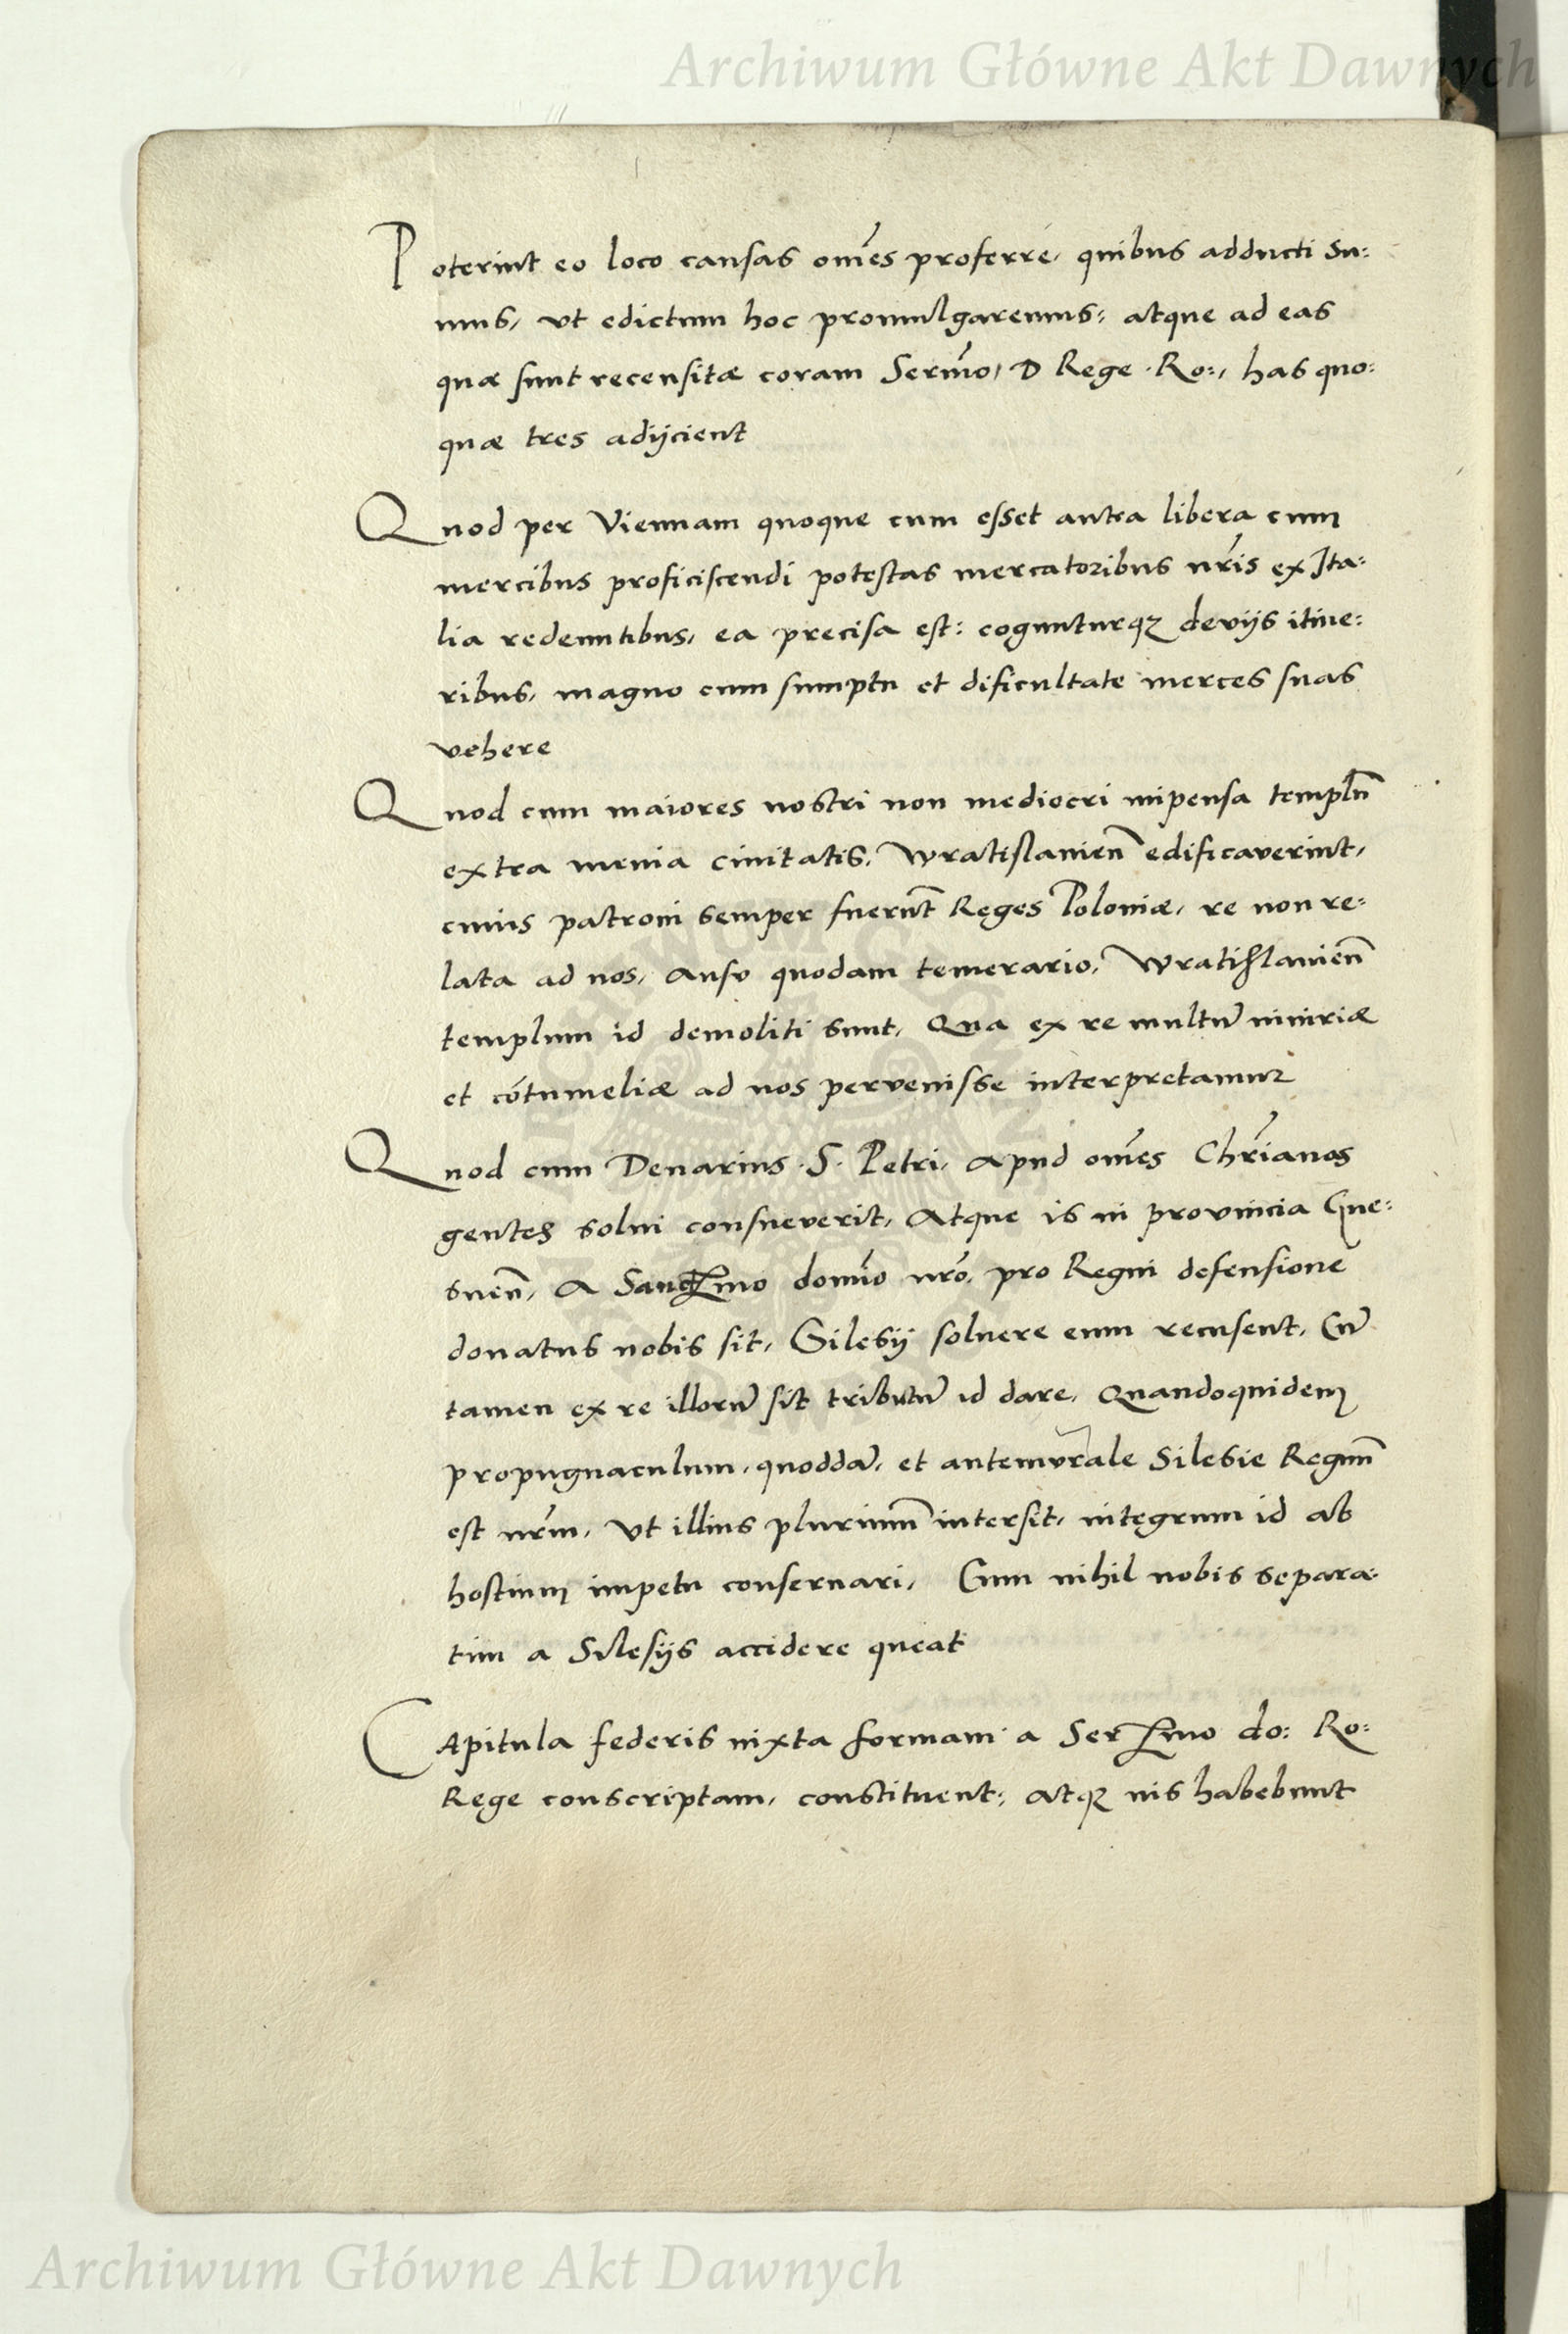 Archiwum Główne Akt Dawnych
Poterint eo loco causas om̃es proferre, quibus adducti su:
mus, ut edictum hoc promulgaremus: atque ad eas
quæ sunt recensitæ coram Serm̃o, D Rege Ro:, has quo:
quæ tres adijcient
Quod per Viennam quoque cum esset antea libera cum
mercibus proficiscendi potestas mercatoribus nr̃is ex Ita:
lia redeuntibus, ea precisa est: cogunturqꝫ devijs itine:
ribus, magno cum sumptu et dificultate merces suas
vehere
Quod cum maiores nostri non mediocri impensa templũ
extra menia civitatis, Wratislavien̄ edificaverint,
cuius patroni semper fuerũt Reges Poloniæ, re non re:
lata ad nos, Ausu quodam temerario, Wratislavien̄
templum id demoliti sunt, Qua ex re multũ iniuriæ
et cõtumeliæ ad nos pervenisse interpretamur
Quod cum Denarius S. Petri, Apud om̃es Chr̃ianos
gentes solvi consueverit, Atque is in provincia Gne:
snen̄, A Sanctmo domĩo nr̃o, pro Regni defensione
donatus nobis sit, Silesij solvere eum recusent, Cũ
tamen ex re illorũ sit tributũ id dare, Quandoquidem
propugnaculum, quoddã, et antemurale Silesie Regnũ
est nr̃m, Ut illius plurimũ intersit, integrum id ab
hostium impetu conservari, Cum nihil nobis separa:
tim a Silesijs accidere queat
Capitula federis iuxta formam a Sermo do: Ro:
Rege conscriptam, constituent: Atqꝫ iiis habebunt
Archiwum Główne Akt Dawnych